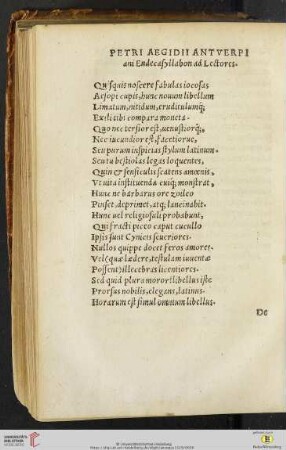 PETRI AEGIDII ANTVERPI
ani Endecasyllabon ad Lectores.
Quisquis noscere fabulas iocosas
Aesopi cupit, hunc nouum libellum
Limatum, nitidum, eruditulumq;
Exili tibi compara moneta.
Quo nec tersior est, uenustiorq;,
Nec iucundior est, facetiorue,
Seu purum inspicias stylum latinum.
Seu tu bestiolas legas loquentes,
Quin & sensiculis scatens amœnis,
Vt uita instituenda cuiq; monstrat,
Hunc ne barbarus ore zoileo
Pinset, deprimet, atq; lancinabit.
Hunc uel religiosuli probabunt,
Qui fracti picco caput cucullo
Ipsis sunt Cynicis seueriores.
Nullos quippe docet feros amores.
Vel (quæ lædere, testulam iuuentæ
Possent) illecebras licentiores.
Sed quid plura moror? libellus iste
Prorsus nobilis, elegans, latinus.
Horarum est simul omnium libellus.
De